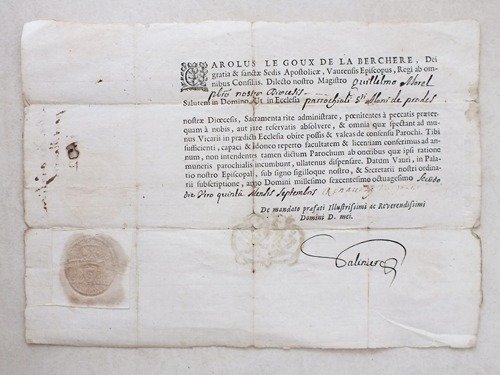 CAROLUS LE GOUX DE LA BERCHERE, Dei
gratia & sanctæ Sedis Apostolicæ, Vaurensis Episcopus, Regi ab om-
nibus Consiliis. Dilecto nostro Magistro Guillelmo Morel
pbro nostræ Diœcesis
Salutem in Domino, Ut in Ecclesia parrochiali Sti Alani de prades
nostræ Diœcesis, Sacramenta rite administrare, pœnitentes à peccatis præter-
quam à nobis, aut jure reservatis absolvere, & omnia quæ spectant ad mu-
nus Vicarii in prædictis Ecclesia obire possis & valeas de consensu Parochi. Tibi
sufficienti, capaci & Idoneo repertò facultatem & licentiam conferimus ad an-
num, non intendentes tamen dictum Parochum ab oneribus quæ ipsi ratione
muneris parochialis incumbunt, ullatenus dispensare. Datum Vauri, in Pala-
tio nostro Episcopali, sub signo sigilloque nostro, & Secretarii nostri ordin-
arii subscriptione, anno Domini millesimo sexcentesimo octuagesimo
die Vero quinta Mensis Septembris
De mandato præfati Illustrissimi ac Reverendissimi
Domini D. mei.